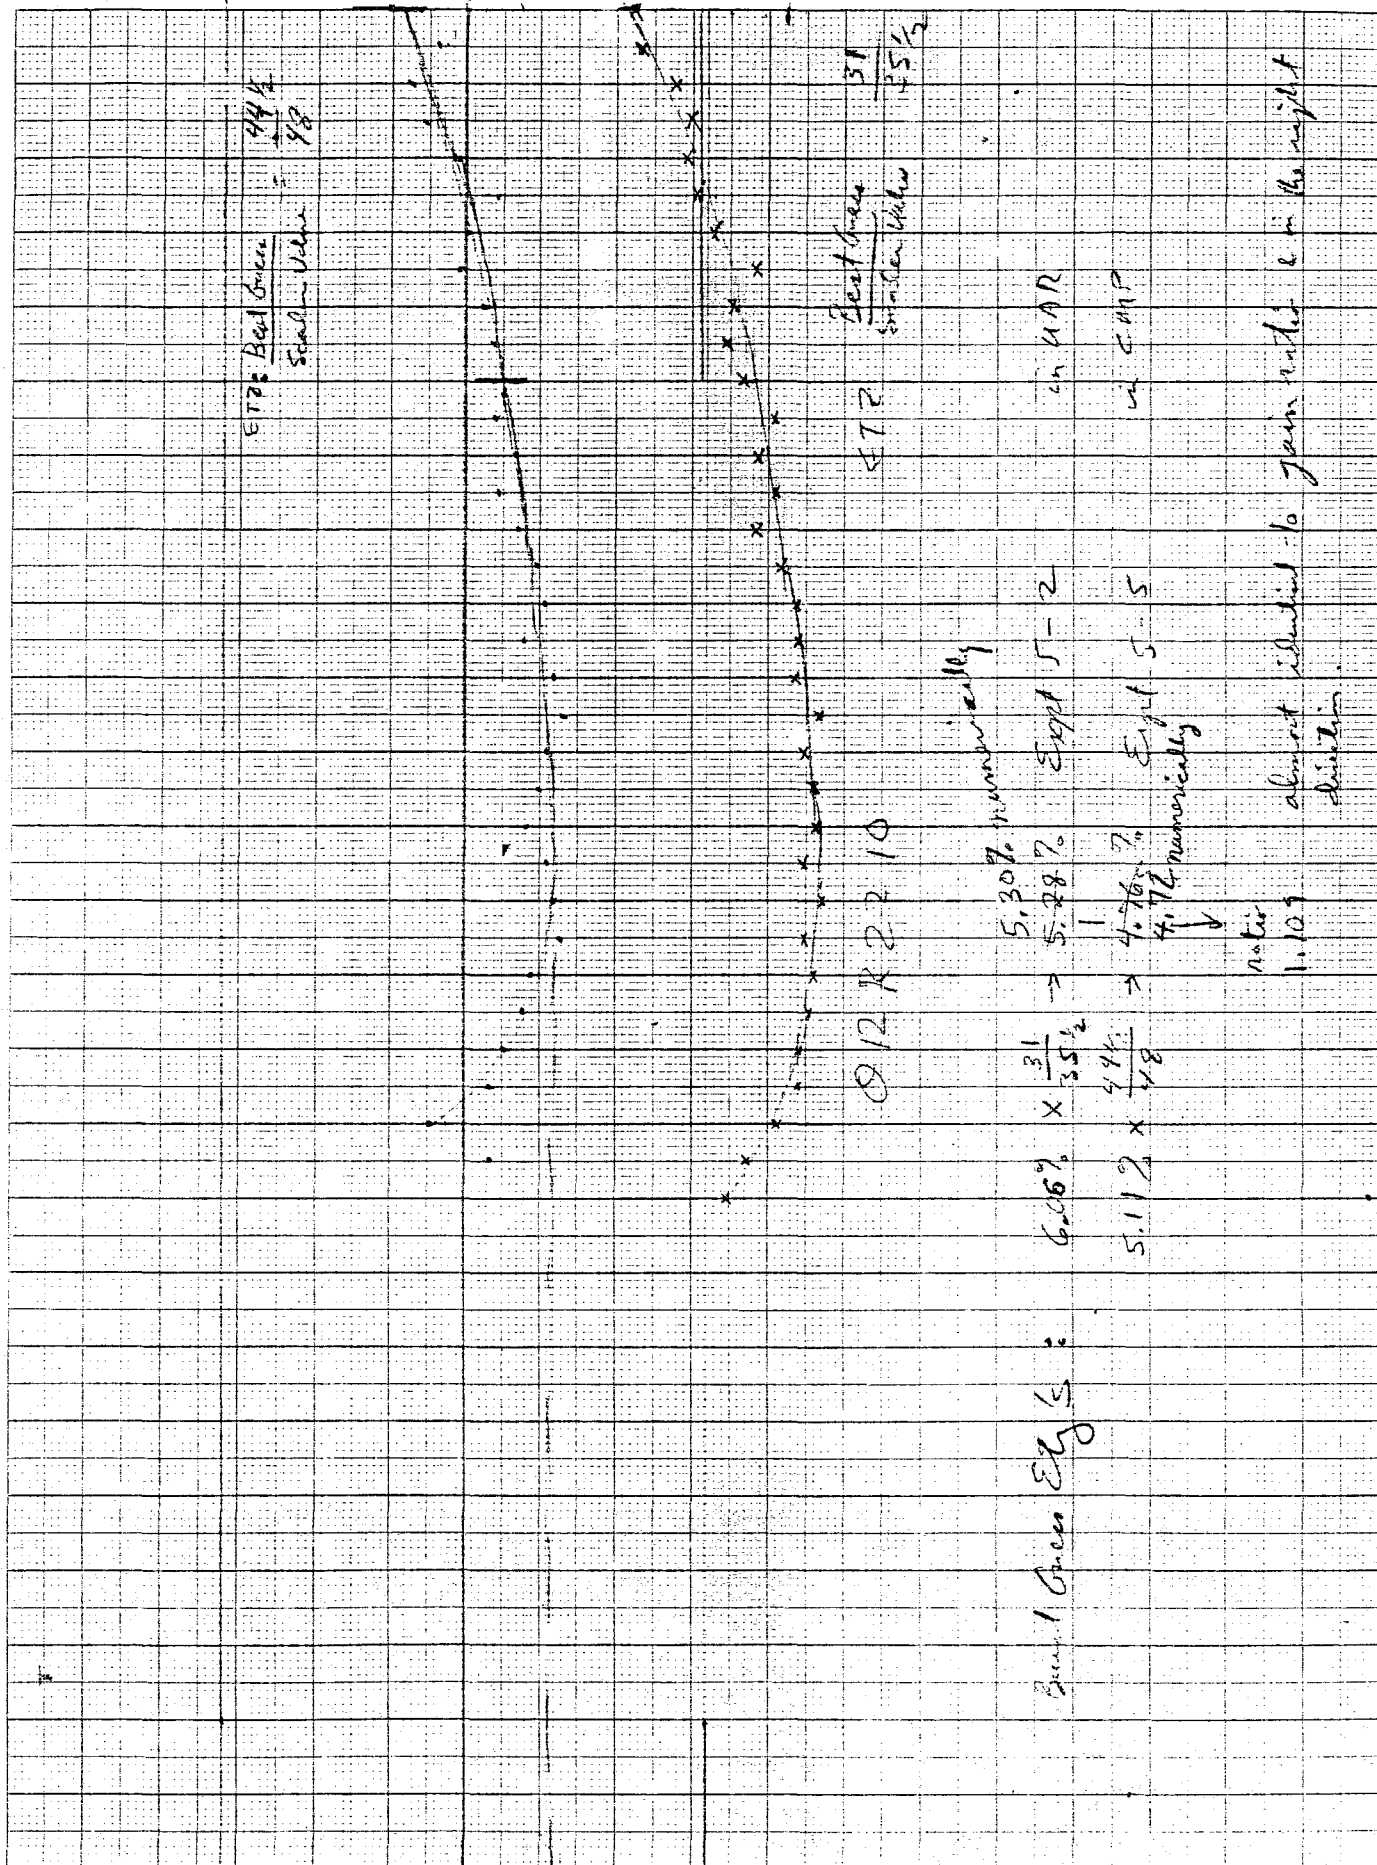 ETP: Best Guess = 44 1/2
Scaler Value 48
ETP Best Guess 31
Scaler Value 35 1/2
O 12 R 22 10
5.30% numerically
Best Guess Eff's : 6.06% × 31/35 1/2 → 5.28% Expt 5-2 in UAR
5.11% × 44 1/2/48 → 4.76% Expt 5-5 in CMP
4.72 numerically
ratio
1.109 almost identical to gain ratio & in the right
direction.